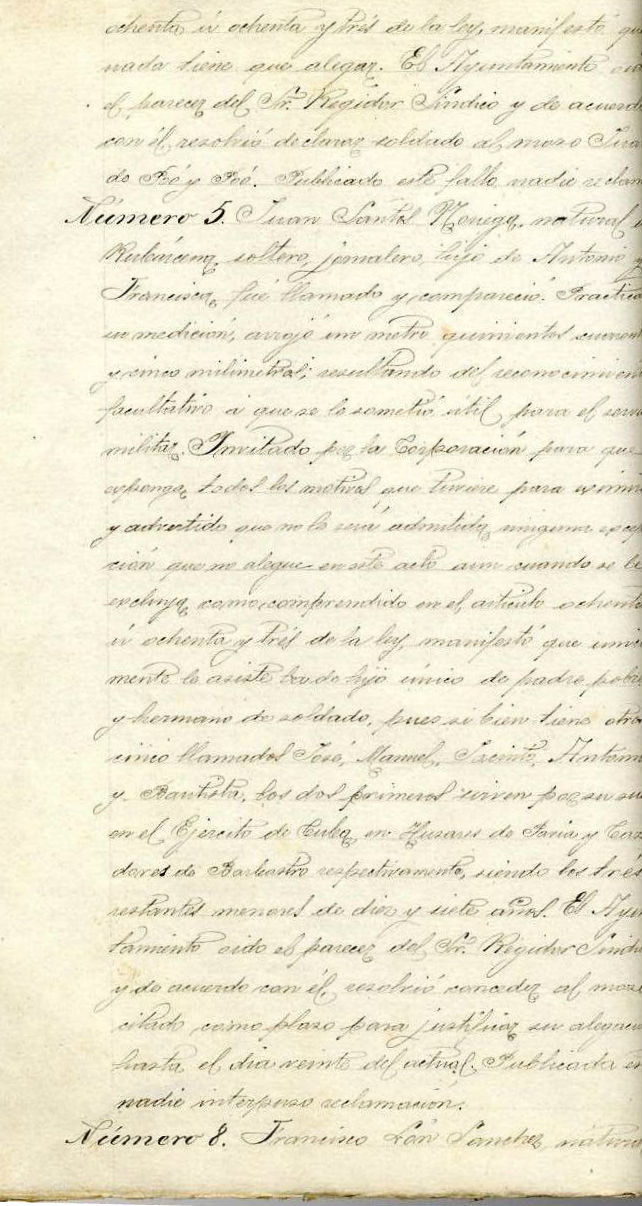 ochenta ú ochenta y trés de la ley, manifestó qu
nada tiene que alegar. El Ayuntamiento oid
el parecer del Sr. Regidor Síndico y de acuerd
con él, resolvió declarar soldado al mozo
de y Publicado este fallo nadie reclam
Número 5. Juan Santos natural d
soltero, jornalero, hijo de Antonio y
Francisca, fué llamado y compareció. Practica
su medición, arrojó un metro quinientos cuaren
y cinco milimetros; resultando del reconocimien
facultativo á que se le sometió útil para el servi
militar. Invitado por la Corporación para que
exponga todos los motivos que tuviere para eximi
y advertido que no le será admitida ninguna excep
ción que no alegue en este acto aun cuando se le
excluya como comprendido en el artículo ochenta
ú ochenta y trés de la ley, manifestó que unica
mente le asiste la de hijo único de padre pobre
y hermano de soldado, pues si bien tiene otro
cinco llamados José, Manuel, Jacinto, Antoni
y Bautista, los dos primeros sirven por su su
en el Ejército de Cuba, en Husares de Pavia y Caz
dores de Barbastro respectivamente, siendo los trés
restantes menores de diez y siete años. El Ayun
tamiento oido el parecer del Sr. Regidor Síndi
y de acuerdo con él, resolvió conceder al mozo
citado como plazo para justificar su alegaci
hasta el dia veinte del actual. Publicada
nadie interpuso reclamacion.
Número 8. Francisco Sanchez, natura